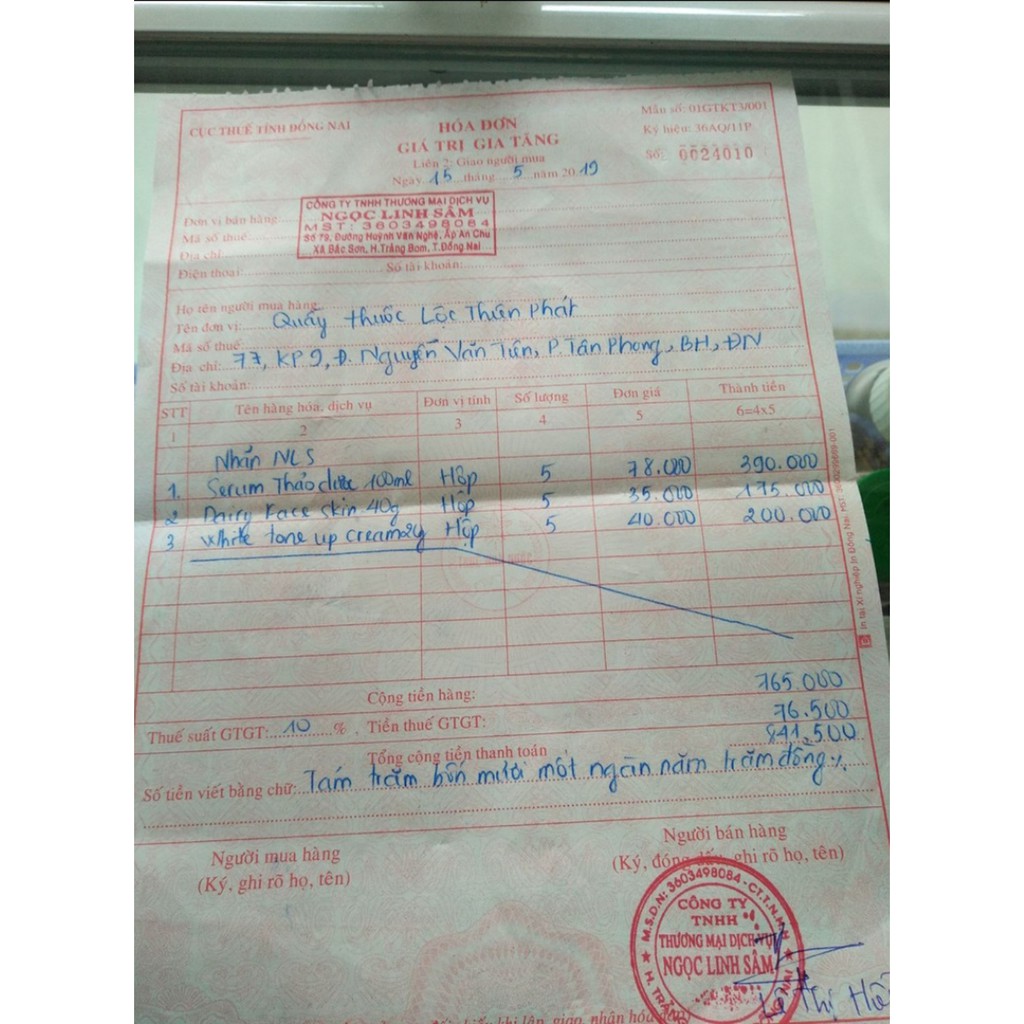 CỤC THUẾ TỈNH ĐỒNG NAI
HÓA ĐƠN
GIÁ TRỊ GIA TĂNG
Liên 2: Giao người mua
Ngày 15 tháng 5 năm 2019
Mẫu số: 01GTKT3/001
Ký hiệu: 36AQ/11P
Số: 0024010
CÔNG TY TNHH THƯƠNG MẠI DỊCH VỤ
NGỌC LINH SÂM
MST: 3603498084
Số 79, Đường Huỳnh Văn Nghệ, Ấp An Chu
Xã Bắc Sơn, H.Trảng Bom, T.Đồng Nai
Đơn vị bán hàng
Mã số thuế
Địa chỉ
Điện thoại: Số tài khoản:
Họ tên người mua hàng:
Tên đơn vị: Quầy thuốc Lộc Thiên Phát
Mã số thuế:
Địa chỉ: 77, KP 9, Đ. Nguyễn Văn Tiên, P. Tân Phong, BH, ĐN
Số tài khoản:
STT Tên hàng hóa, dịch vụ Đơn vị tính Số lượng Đơn giá Thành tiền
1 2 3 4 5 6=4x5
Nhãn NLS
1. Serum Thảo dược 100ml Hộp 5 78.000 390.000
2 Dairy Face Skin 40g Hộp 5 35.000 175.000
3 White tone up cream Hộp 5 40.000 200.000
Cộng tiền hàng: 765.000
Thuế suất GTGT: 10 %, Tiền thuế GTGT: 76.500
Tổng cộng tiền thanh toán 841.500
Số tiền viết bằng chữ: Tám trăm bốn mươi một ngàn năm trăm đồng
Người mua hàng
(Ký, ghi rõ họ, tên)
Người bán hàng
(Ký, đóng dấu, ghi rõ họ, tên)
M.S.D.N: 3603498084 - C.T.T.N.H.H
CÔNG TY
TNHH
THƯƠNG MẠI DỊCH VỤ
NGỌC LINH SÂM
Lê Thị
khi lập, giao, nhận hóa